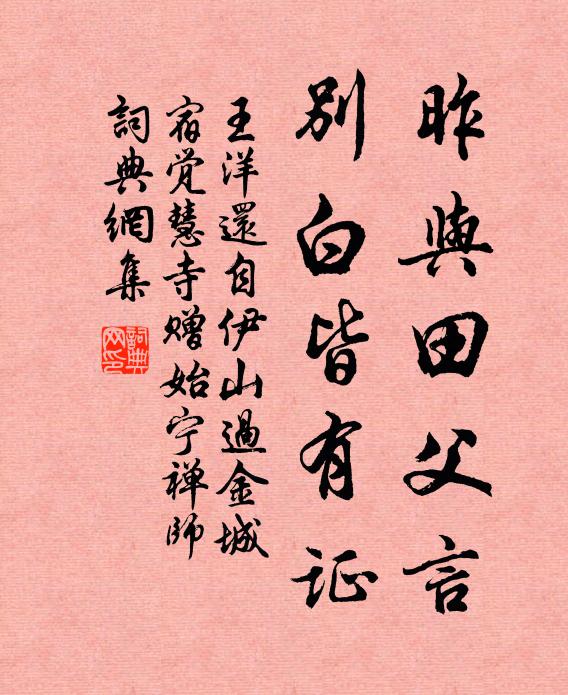 昨與田父言
別白皆有证
王洋還自伊山過金城
宿觉慧寺赠始宁禅師
詞典網集
詞典網印